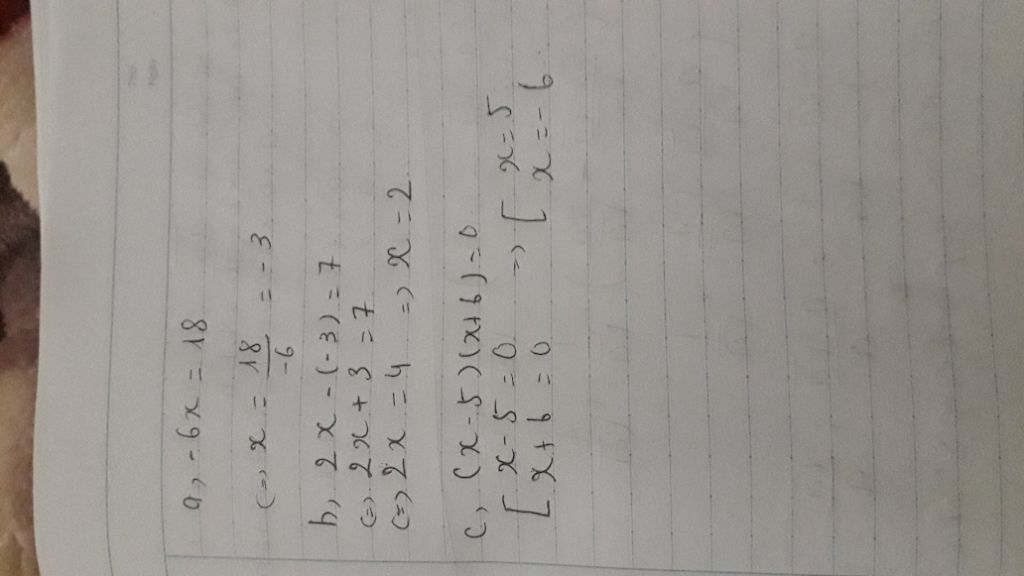 a, -6x = 18
(=) x = 18/-6 = -3
b, 2x - (-3) = 7
(=) 2x + 3 = 7
(=) 2x = 4 => x = 2
c, (x - 5)(x + 6) = 0
[ x - 5 = 0 => [ x = 5
[ x + 6 = 0 [ x = -6